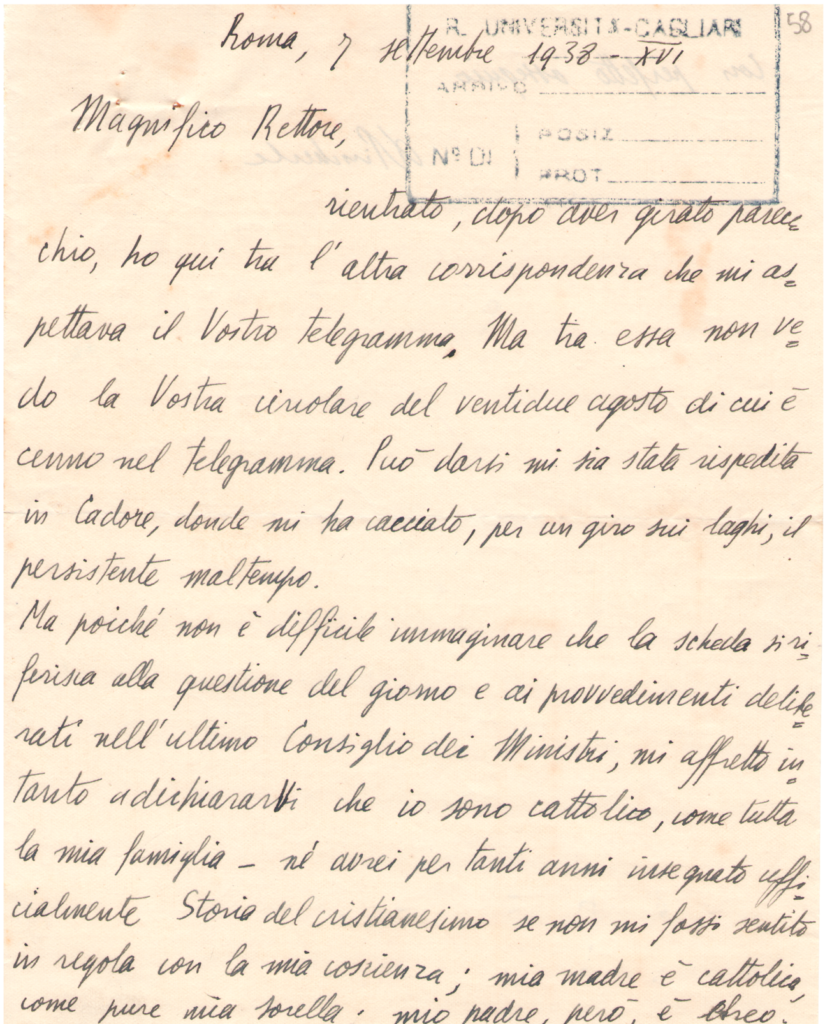 58
R. UNIVERSITÀ-CAGLIARI
Roma, 7 settembre 1938-XVI
ARRIVO
Magnifico Rettore,
POSIZ
Nº DI
PROT
rientrato, dopo aver girato parec=
chio, ho qui tra l'altra corrispondenza che mi as=
pettava il Vostro telegramma. Ma tra essa non ve=
do la Vostra circolare del ventidue agosto di cui è
cenno nel telegramma. Può darsi mi sia stata rispedita
in Cadore, donde mi ha cacciato, per un giro sui laghi, il
persistente maltempo.
Ma poiché non è difficile immaginare che la scheda si ri=
ferisca alla questione del giorno e ai provvedimenti delibe=
rati nell'ultimo Consiglio dei Ministri, mi affretto in=
tanto a dichiararVi che io sono cattolico, come tutta
la mia famiglia – né avrei per tanti anni insegnato uffi=
cialmente Storia del cristianesimo se non mi fossi sentito
in regola con la mia coscienza; mia madre è cattolica,
come pure mia sorella; mio padre, però, è ebreo.